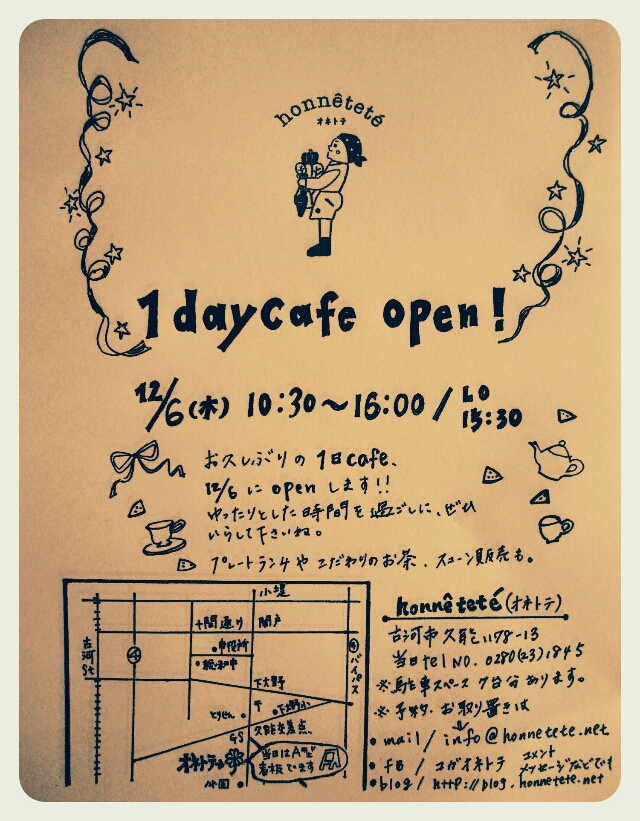 honnêteté
オネトテ
1 day cafe open!
12/6(木) 10:30〜16:00/LO 15:30
お久しぶりの1日cafe、
12/6 に open します!!
ゆったりとした時間を過ごしに、ぜひ
いらして下さいね。
プレートランチや こだわりのお茶、スコーン販売も。
小堤
十間通り
関戸
古河St
④
市役所
総和中
④バイパス
下大野
とりせん
〒
下大野小
久能交差点
GS
オネトテ
当日はA型
看板でています
honnêteté(オネトテ)
古河市久能1178-13
当日tel NO. 0280(23)1845
※駐車スペース 7台分あります。
※予約、お取り置きは
• mail / info@honnetete.net
• FB / コガオネトテ コメント メッセージなどでも
• blog / http://blog.honnetete.net